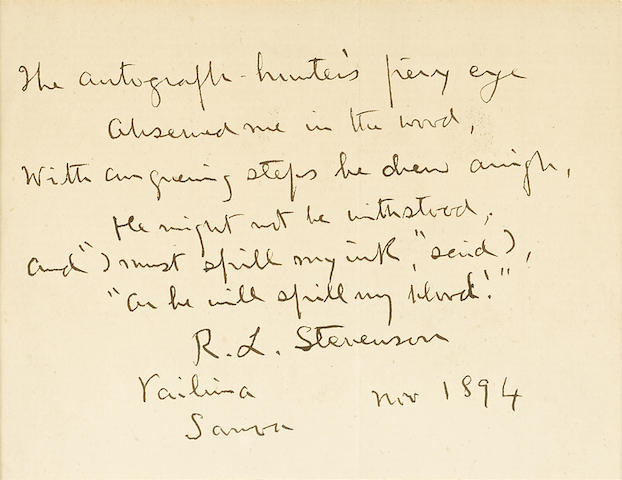 The autograph-hunter's fiery eye
Observed me in the wood,
With conquering steps he drew anigh,
He might not be withstood,
And "I must spill my ink," said I,
"Or he will spill my blood."
R. L. Stevenson
Vailima Nov 1894
Samoa